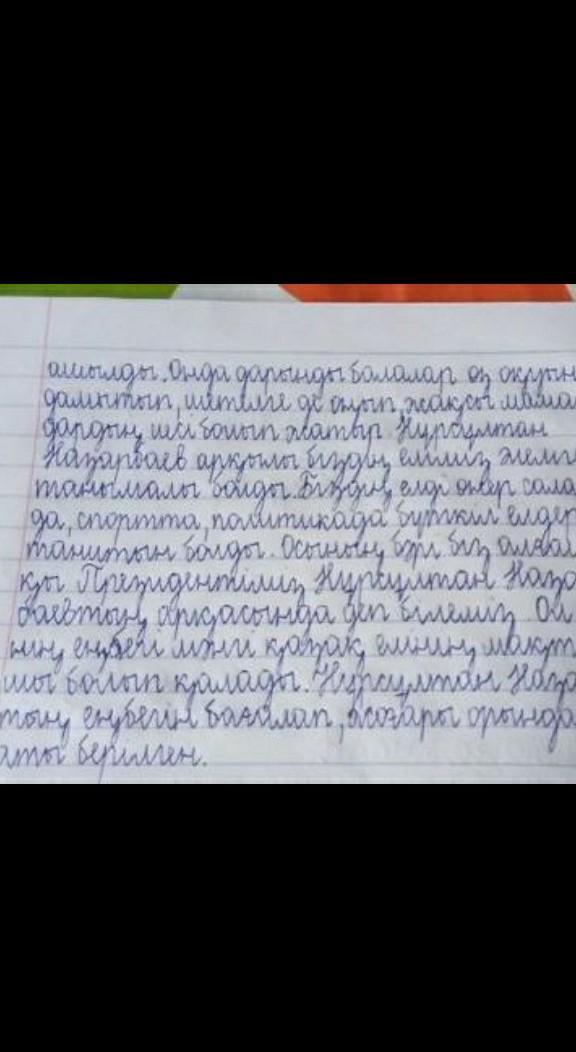 ашылды. Онда дарынды балалар өз оқуын
дамытып, шетелге де оқып, жақсы мама
дардың иесі болып жатыр Нұрсұлтан
Назарбаев арқылы біздің еліміз әлемге
танымалы болды. Біздің елді өнер сала
да, спортта, политикада бүткіл елдер
танитын болды. Осының бәрі біз алғаш
қы Президентіміз Нұрсұлтан Наза
баевтың арқасында деп білеміз Ол
нің еңбегі мәңгі қазақ елінің мақт
шы болып қалады. Нұрсұлтан Наза
тың еңбегін бағалап, жоғары орында
аты берілген.